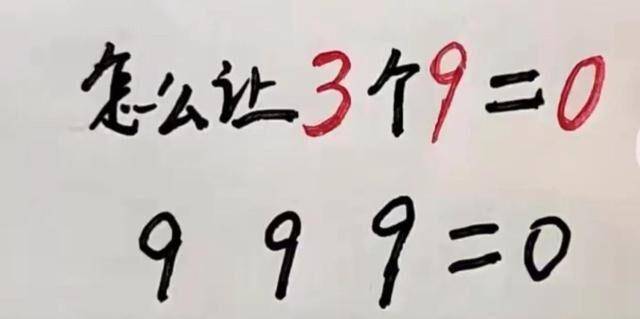 怎么让3个9=0
9 9 9=0